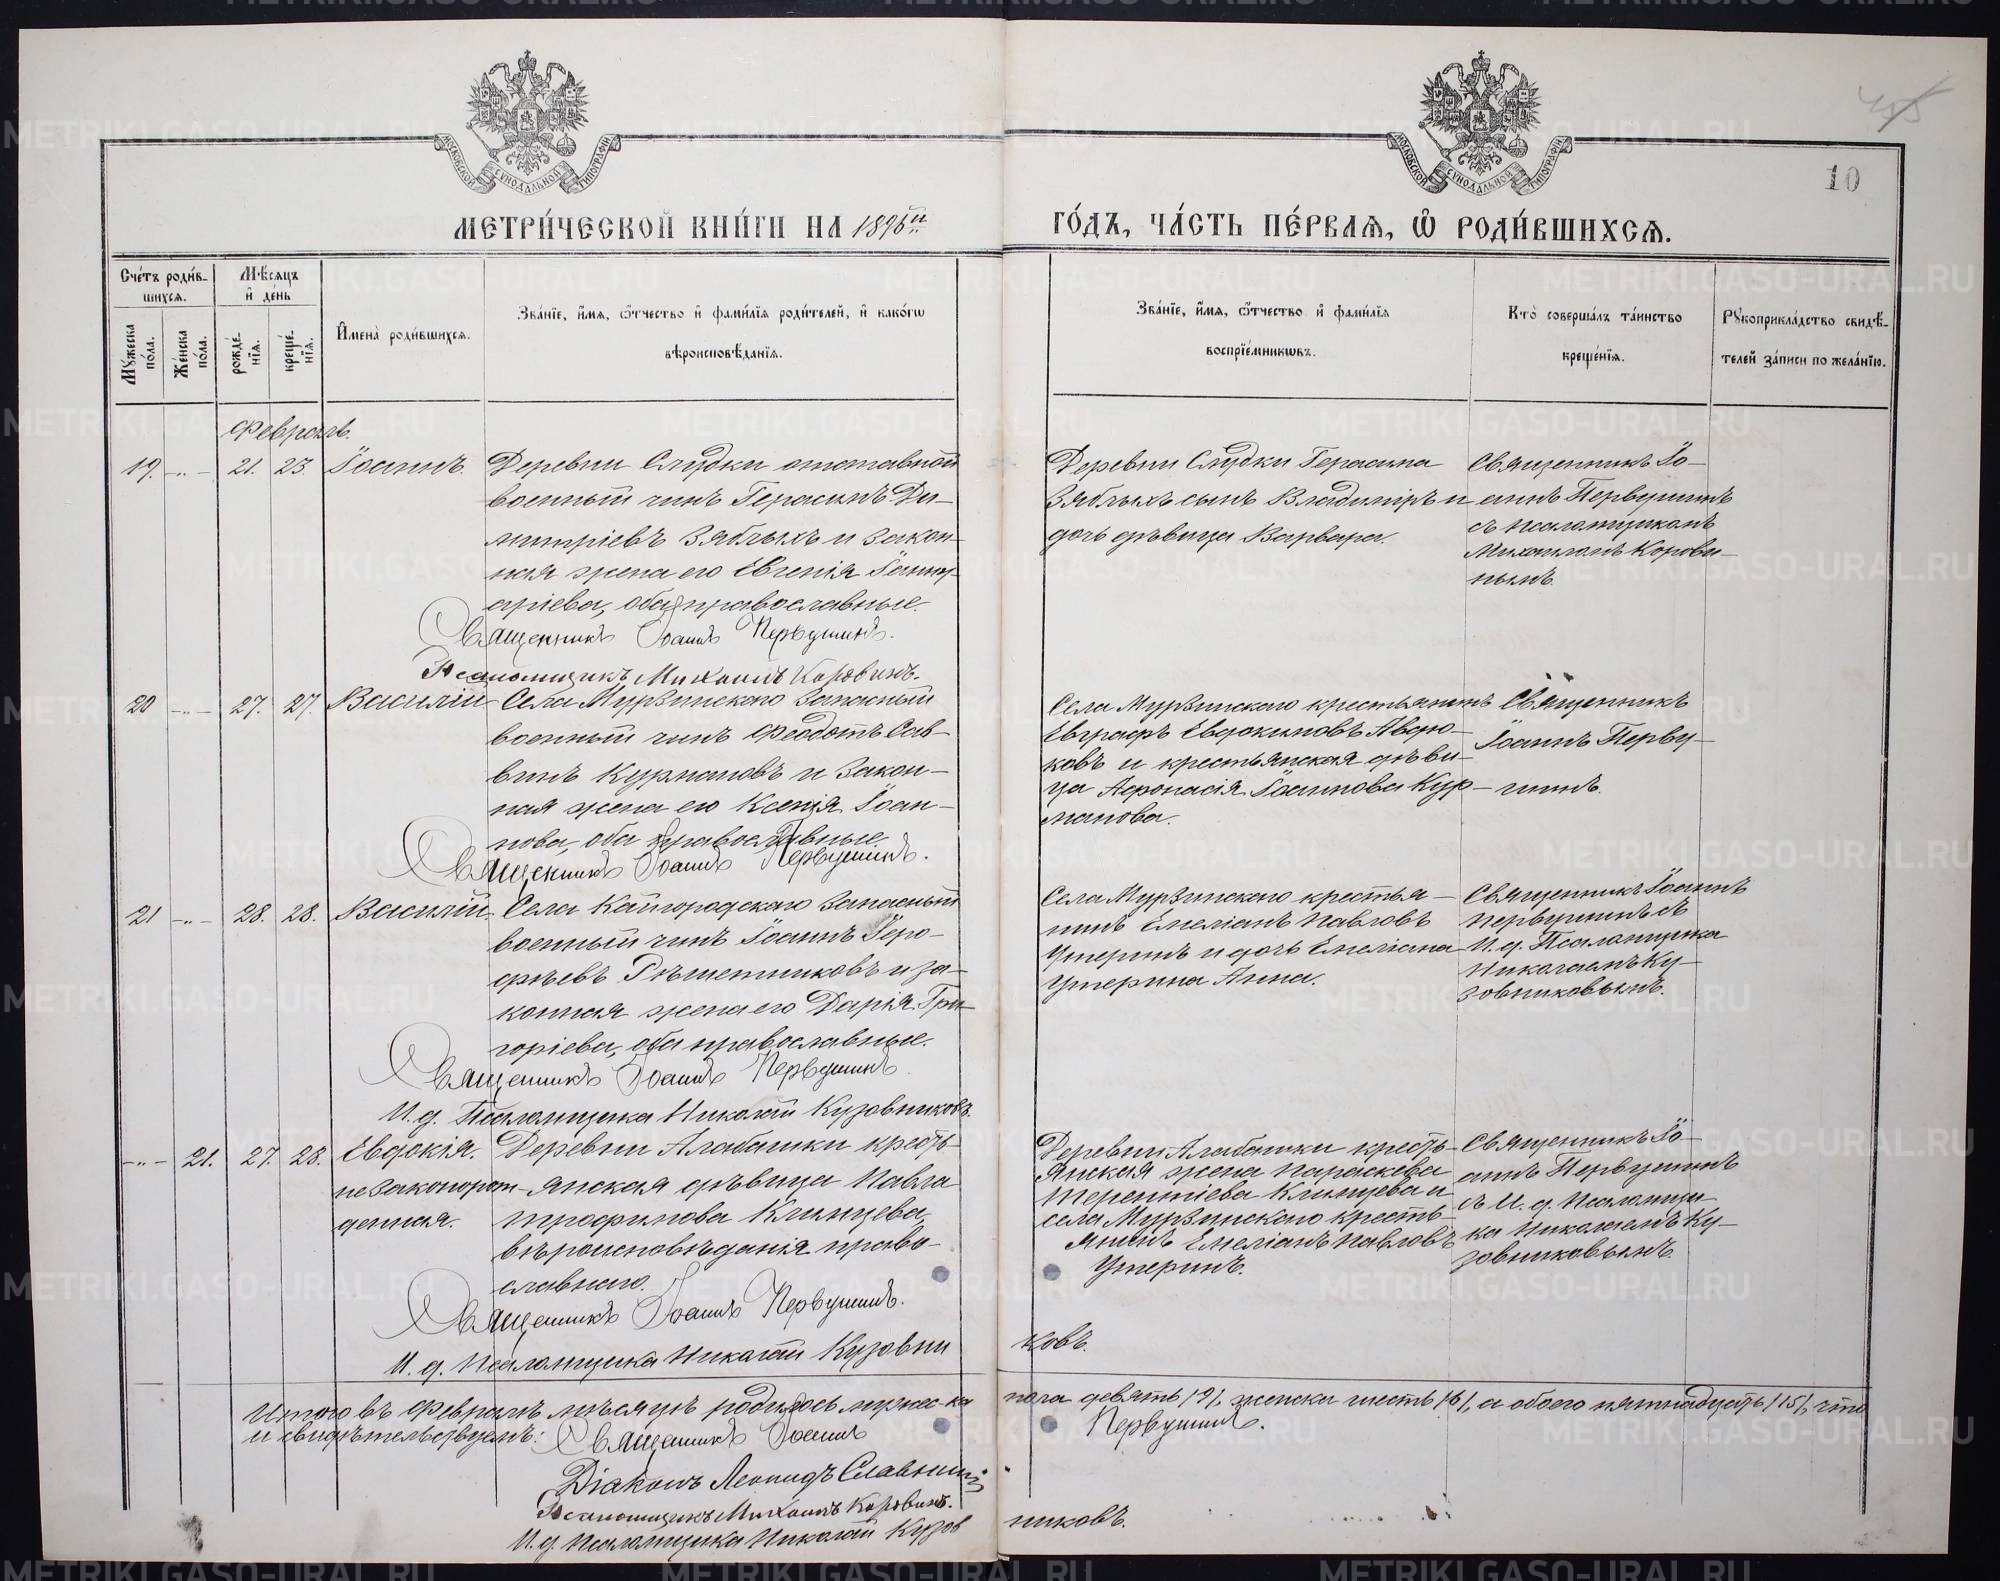 МЕТРИ́ЧЕСКОЙ КНИ́ГИ НА 1896й
ГО́ДЪ, ЧА́СТЬ ПЕ́РВАЯ, Ѡ҆ РОДИ́ВШИХСЯ.
МОСКОВСКОЙ СѴНОДАЛЬНОЙ ТИПОГРАФІИ
МОСКОВСКОЙ СѴНОДАЛЬНОЙ ТИПОГРАФІИ
10
Сче́тъ роди́в-
шихся.
Мѣ́сяцъ
и де́нь
Мꙋжеска по́ла.
Же́нска по́ла.
рожде́-нія.
креще́-нія.
Имена̀ роди́вшихся.
Зва́ніе, и́мя, ѻ́тчество и фами́лія роди́телей, и како́гѡ
вѣроисповѣ́данія.
Зва́ніе, и́мя, ѻ́тчество и фами́лія
воспріе́мникѡвъ.
Кто̀ соверша́лъ та́инство
креще́нія.
Рꙋкоприкла́дство свидѣ́-
телей за́писи по жела́нію.
Февраль.
19. -"- 21. 23. Іоаннъ. Деревни Слудки отставной
военный чинъ Герасимъ Ди-
митріевъ Зяблыхъ и закон-
ная жена его Евгенія Іанну-
аріева, оба православные.
Священникъ Іоаннъ Первушинъ.
Псаломщикъ Михаилъ Коровинъ.
Деревни Слудки Герасима
Зяблыхъ сынъ Владиміръ и
дочь дѣвица Варвара.
Священникъ Іо-
аннъ Первушинъ
съ псаломщикомъ
Михаиломъ Корови-
нымъ.
20 -"- 27. 27. Василій Села Мурзинскаго запасный
военный чинъ Феодотъ Сав-
винъ Курмановъ и закон-
ная жена его Ксенія Іоан-
нова, оба православные.
Священникъ Іоаннъ Первушинъ.
Села Мурзинскаго крестьянинъ
Евграфъ Евдокимовъ Авдю-
ковъ и крестьянская дѣви-
ца Афонасія Іоаннова Кур-
манова.
Священникъ
Іоаннъ Перву-
шинъ.
21 -"- 28. 28. Василій Села Кайгородскаго запасный
военный чинъ Іоаннъ Іеро-
фѣевъ Рѣшетниковъ и за-
конная жена его Дарія Гри-
горіева, оба православные.
Священникъ Іоаннъ Первушинъ.
И. д. Псаломщика Николай Кузовниковъ.
Села Мурзинскаго крестья-
нинъ Емеліанъ Павловъ
Утеринъ и дочь Емеліана
Утерина Анна.
Священникъ Іоаннъ
Первушинъ съ
И. д. Псаломщика
Николаемъ Ку-
зовниковымъ.
-"- 21. 27. 28. Евдокія. Деревни Алабашки кресть-
незаконорож- янская дѣвица Павла
денная. Трофимова Клипцева,
вѣроисповѣданія право-
славнаго.
Священникъ Іоаннъ Первушинъ.
И. д. Псаломщика Николай Кузовни
ковъ.
Деревни Алабашки кресть-
янская жена Параскева
Терентіева Клипцева и
села Мурзинскаго кресть-
янинъ Емеліанъ Павловъ
Утеринъ.
Священникъ Іо-
аннъ Первушинъ
съ И. д. Псаломщи-
ка Николаемъ Ку-
зовниковымъ.
Итого въ Февралѣ мѣсяцѣ родилось мужеска пола девять /9/, женска шесть /6/, а обоего пятнадцать /15/, что
и свидѣтельствуемъ: Священникъ Іоаннъ Первушинъ.
Діаконъ Леонидъ Славнинъ
Псаломщикъ Михаилъ Коровинъ.
И. д. Псаломщика Николай Кузов
никовъ.
METRIKI.GASO-URAL.RU